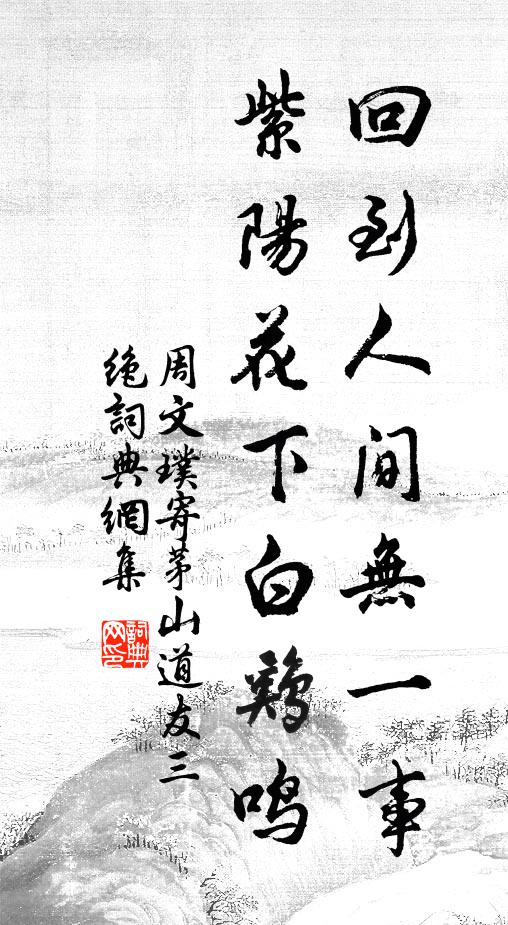 回到人间無一事
紫陽花下白鷄鳴
周文璞寄茅山道友三
絶詞典網集
詞典网印